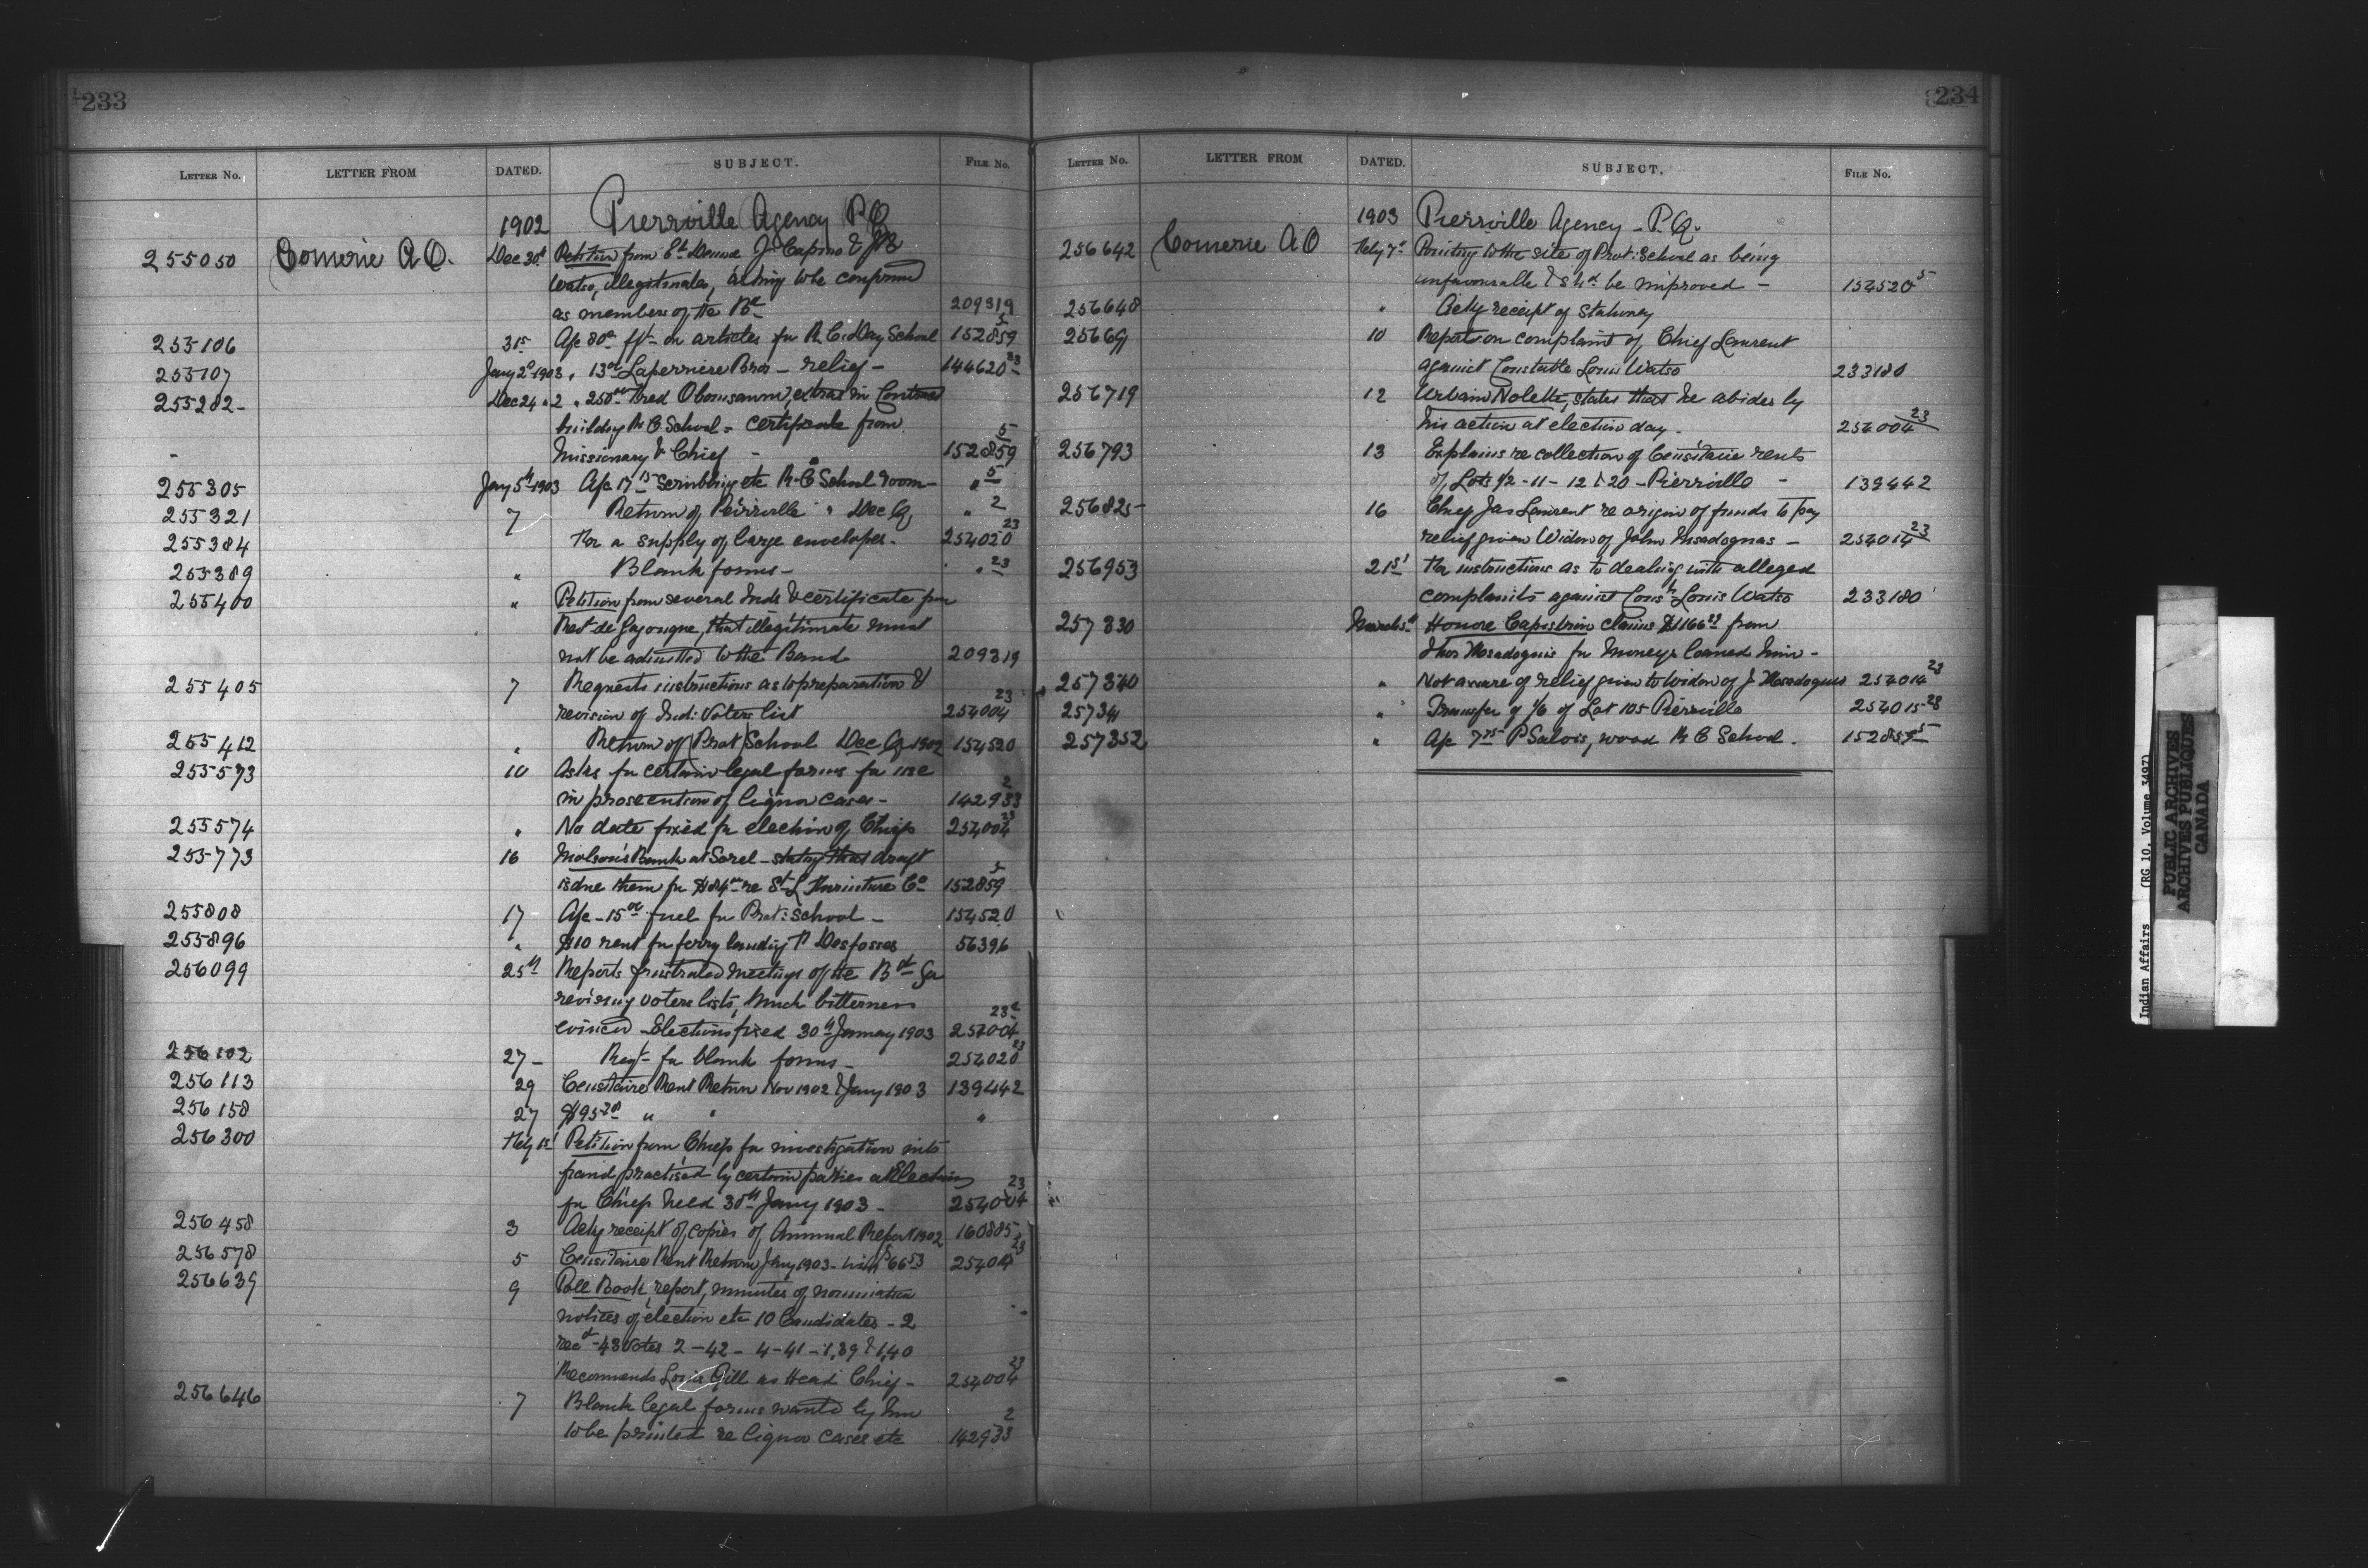 233
LETTER NO. LETTER FROM DATED. SUBJECT. FILE No.
1902 Pierrville Agency P.Q
255050 Comerie A.O. Dec 30th Petition from Et. J. Capino & 
Watso, illegitimates, asking to be confirmed
as members of the Bd 209319
255106 31st a/c 80c on articles for R.C. Day School 152859 5
255107 Jany 2d 1903 " 13 00 Laperriere Bros - relief - 144620 23
255282 - Dec 24 " 2 " 250 00 Fred Obomsawin, extras in Contract
building R C School - certificate from
- Missionary & Chief - 152859 5
255305 Jany 5th 1903 a/c 17 75 Scrubbing etc R.C School room - " 5
255321 7 Return of Pierrville " Dec Q " 2
255384 For a supply of large envelopes - 254020 23
255389 " Blank forms - " 23
255400 " Petition from several Inds & certificate from
Revt de Gagongne, that illegitimate must
not be admitted to the Band 209319
255405 7 Requests instructions as to preparation &
revision of Ind: Voters list 254004 23
255412 " Return of Prot School Dec Q 1902 154520
255573 10 Asks for certain legal forms for use
in prosecution of liquor cases - 142933 2
255574 " No date fixed for election of Chiefs 254004 23
255773 16 Molson's Bank at Sorel - stating that draft
is due them for $84 00 re St. L Furniture Co 152859 5
255808 17 a/c - 15 00 fuel for Prot: School - 154520
255896 " $10 rent for ferry landing P Desfosses 56396
256099 25th Reports frustrated meetings of the Bd for
revising voters lists, much bitterness
evinced - Elections fixed 30th January 1903 254004 23
256102 27 - Reqt for blank forms - 254020 23
256113 29 Censitaire Rent Return Nov 1902 & Jany 1903 139442
256158 27 $95 20 " " "
256300 Feby 1st Petition from Chiefs for investigation into
fraud practised by certain parties at Elections
for Chiefs held 30th Jany 1903 - 254004 23
256458 3 Ackg receipt of copies of Annual Report 1902 160885
256578 5 Censitaire Rent Return Jany 1903 - with $66 53 254014 23
256639 9 Poll Book, report, minutes of nomination
notices of election etc 10 Candidates - 2
recd - 43 Votes 2 - 42 - 4 - 41 - 1,39 & 1,40
Recommends Louis Gill as Head Chief - 254004 23
256646 7 Blank legal forms wanted by him
to be printed re liquor cases etc 142933 2
234
LETTER NO. LETTER FROM DATED. SUBJECT. FILE No.
1903 Pierrville Agency - P.Q.
256642 Comerie A O Feby 7th Pointing to the site of Prot: School as being
unfavourable & shd be improved - 154520 5
256648 " Ackg receipt of stationery
25669 10 Report on complaint of Chief Laurent
against Constable Louis Watso 233180
256719 12 Urbain Nolette, states that he abides by
his action at election day. 254004 23
256793 13 Explains re collection of Censitaire rents
of Lots 1/2 - 11 - 12 & 20 - Pierrville - 139442
256825 16 Chief Jas Laurent re origin of funds to pay
relief given Widow of John Msadoques - 254014 23
256953 21st For instructions as to dealing with alleged
complaints against Consth Louis Watso 233180
257330 March 5th Honore Capistrin claims $1166 from
Thos Msadoquis for Moneys loaned him -
257340 " Not aware of relief given to Widow of J Msadoques 254014 23
257341 " Transfer of 1/6 of Lot 105 Pierrville 254015 28
257352 " a/c 7 75 P Salois, wood R C School. 152859 5
Indian Affairs (RG 10, Volume 3497)
PUBLIC ARCHIVES
ARCHIVES PUBLIQUES
CANADA